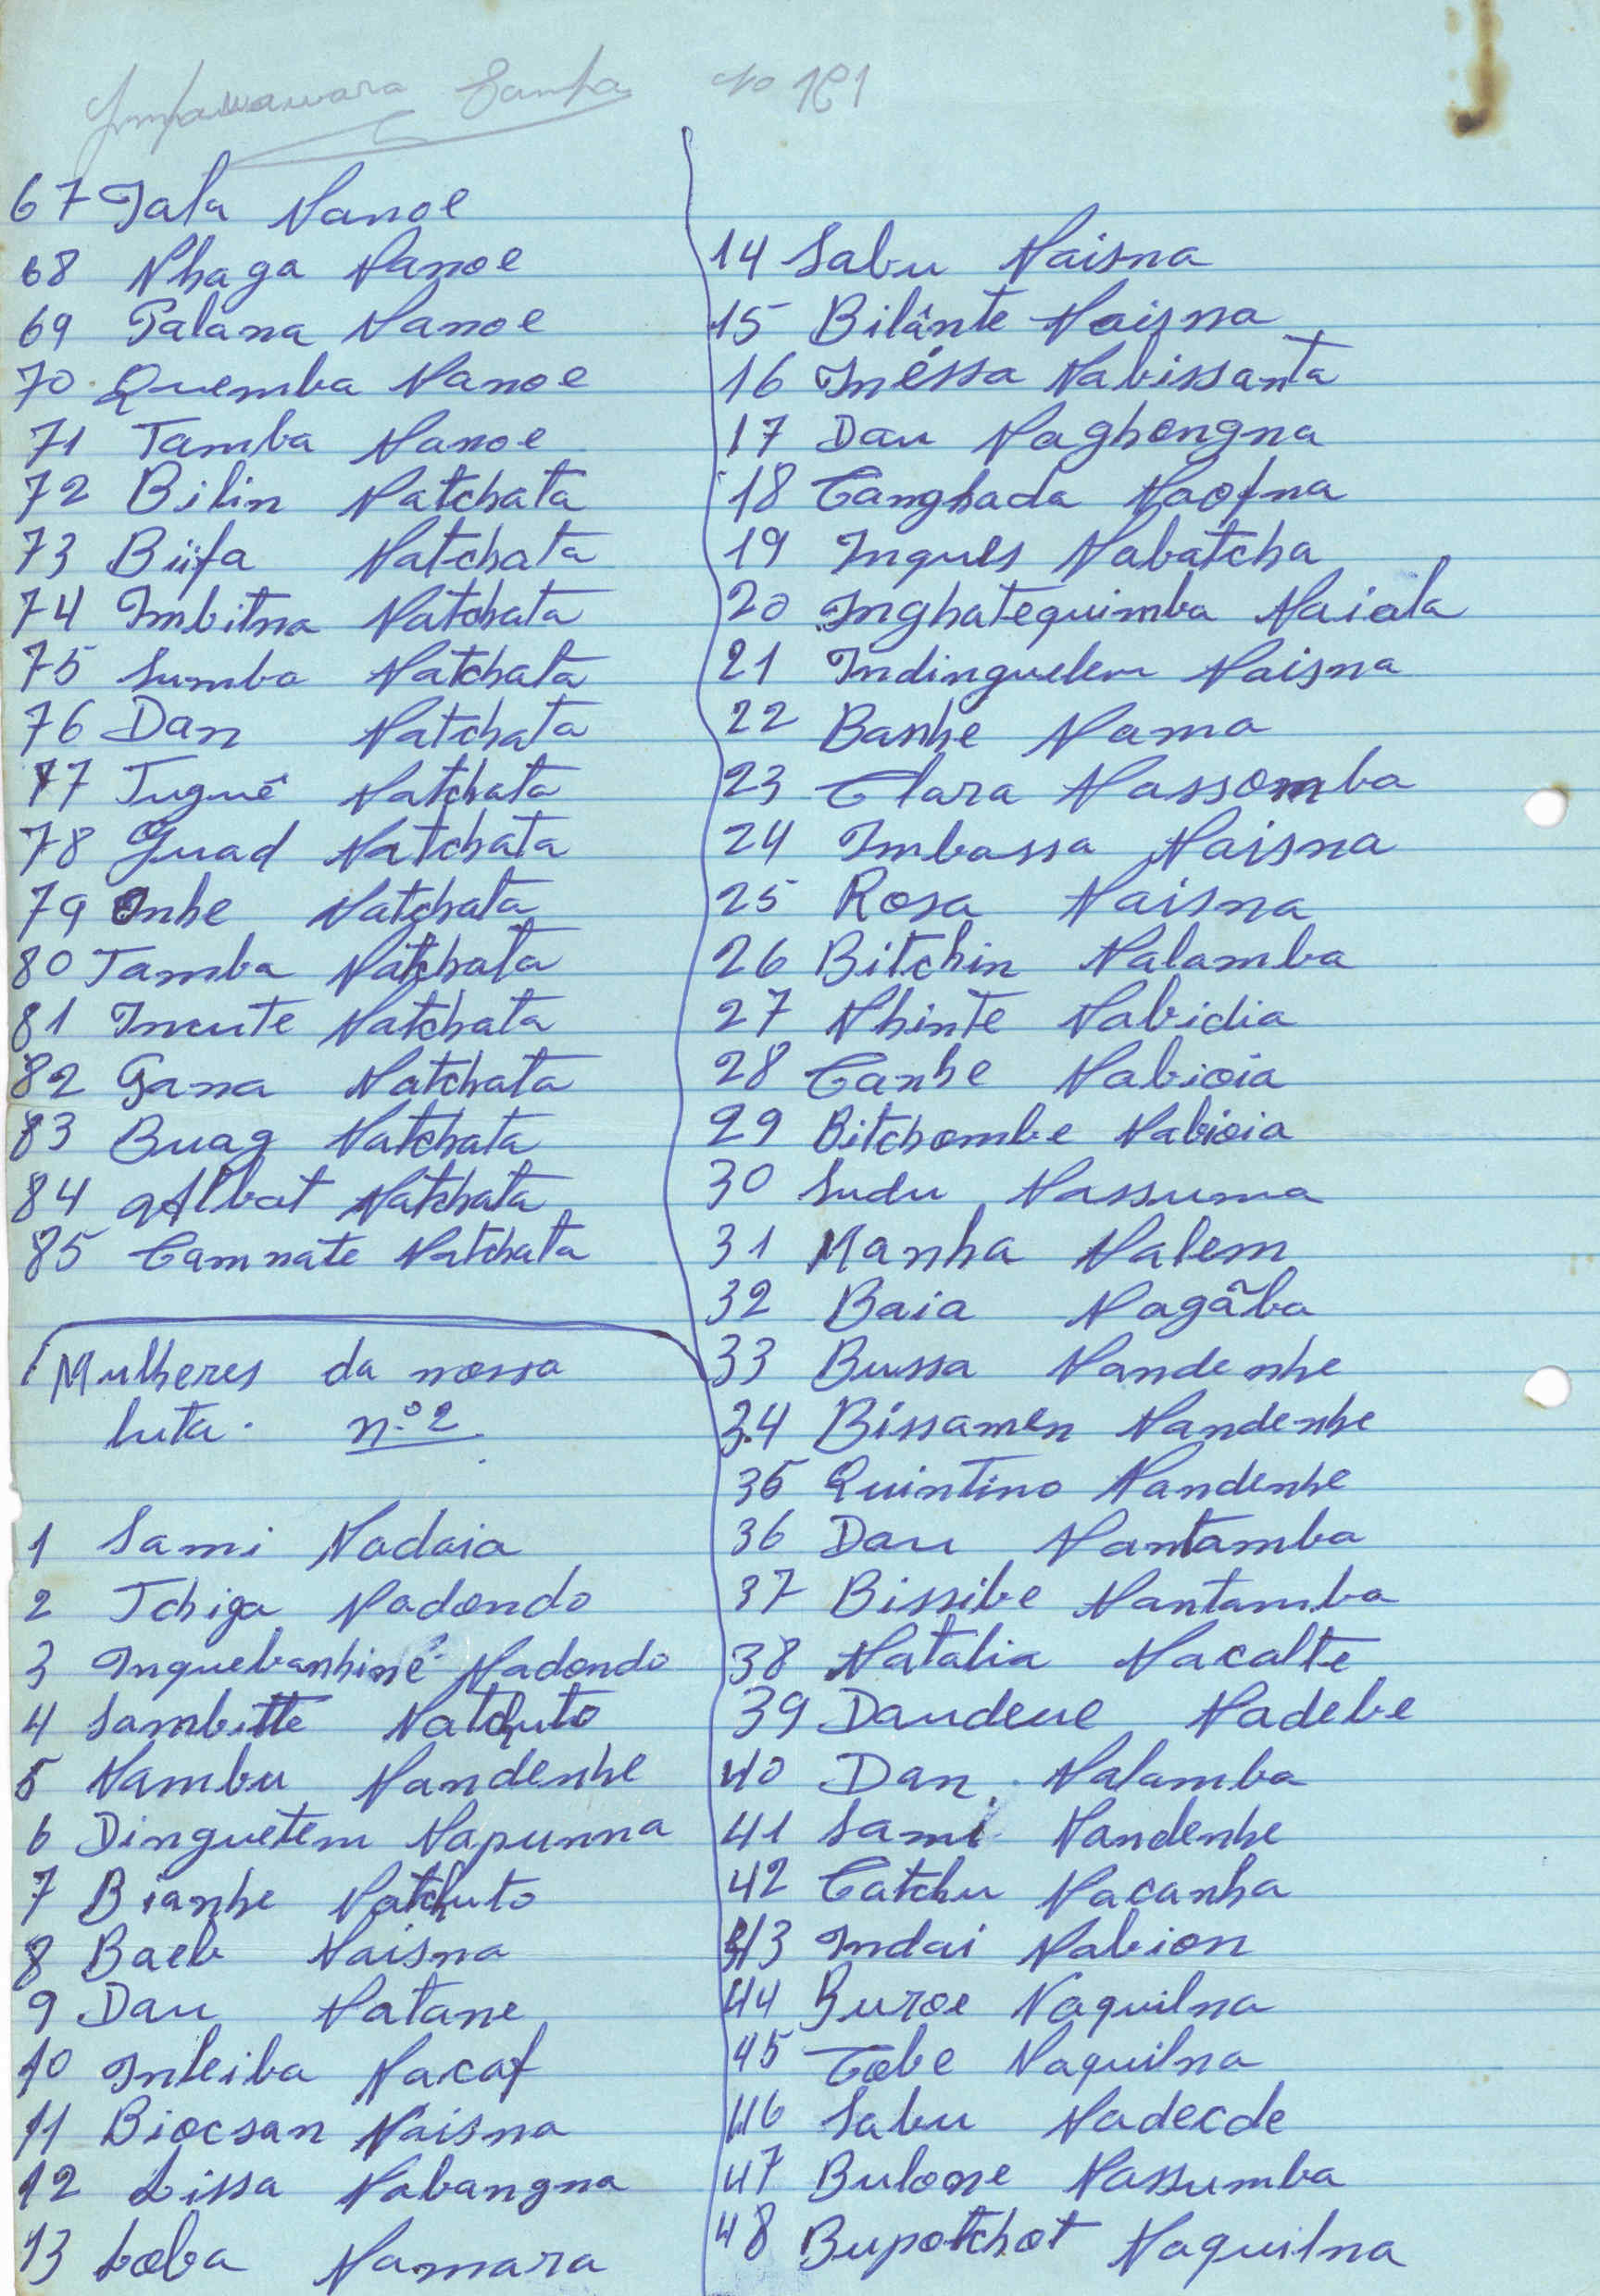 Nº 181
67 Tala Nanoe
68 Nhaga Nanoe
69 Palana Nanoe
70 Quemba Nanoe
71 Tamba Nanoe
72 Bilin Natchata
73 Biifa Natchata
74 Imbitna Natchata
75 Sumba Natchata
76 Dan Natchata
77 Tuguê Natchata
78 Guad Natchata
79 Onhe Natchata
80 Tamba Natchata
81 Incute Natchata
82 Gana Natchata
83 Buag Natchata
84 Albat Natchata
85 Camnate Natchata
Mulheres da nossa
luta. n.º 2.
1 Sami Nadaia
2 Tchiga Nadondo
3 Inquebanhiné Nadondo
4 Sambitte Natchuto
5 Nambu Nandenhe
6 Dinguetem Napunna
7 Bianhe Natchuto
8 Baeb Naisna
9 Dau Natane
10 Inleiba Nacaf
11 Biocsan Naisna
12 Lissa Nabangna
13 Loba Namara
14 Sabu Naisna
15 Bilânte Naisna
16 Inéssa Nabissanta
17 Dau Naghongna
18 Canghada Naofna
19 Ingues Nabatcha
20 Inghatequimba Naiala
21 Indinguelem Naisna
22 Banhe Nama
23 Clara Nassomba
24 Imbassa Naisna
25 Rosa Naisna
26 Bitchin Nalamba
27 Nhinte Nabidia
28 Canhe Nabioia
29 Bitchombe Nabioia
30 Sudu Nassuma
31 Manha Nalem
32 Baia Nagãba
33 Bussa Nandenhe
34 Bissamen Nandenhe
35 Quintino Nandenhe
36 Dau Nantamba
37 Bissibe Nantamba
38 Natalia Nacalte
39 Daudeue Nadebe
40 Dan Nalamba
41 Sami Nandenhe
42 Catchu Nacanha
43 Indai Nabion
44 Buroe Naquilna
45 Cobe Naquilna
46 Sabu Nadecde
47 Bulone Nassumba
48 Bupotchot Naquilna